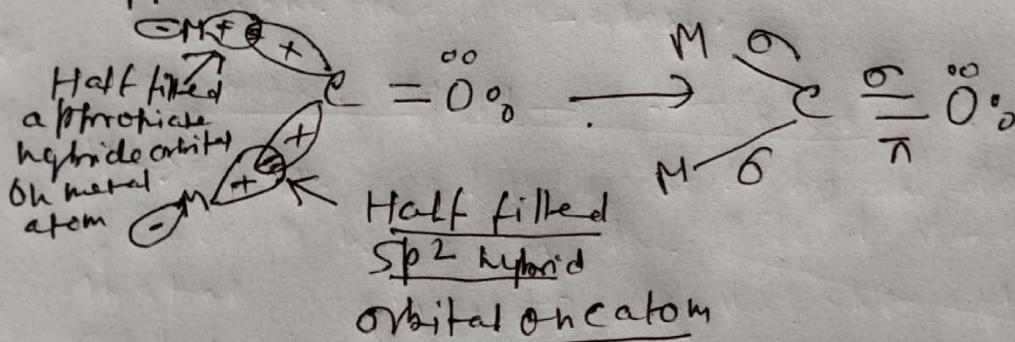 ⊖M + +
Half filled
appropiate
hybride orbital
on metal
atom
C = Ö: ⟶ M σ C σ π Ö:
+
+
⊖ M
M σ
Half filled
Sp² hybrid
orbital on C atom